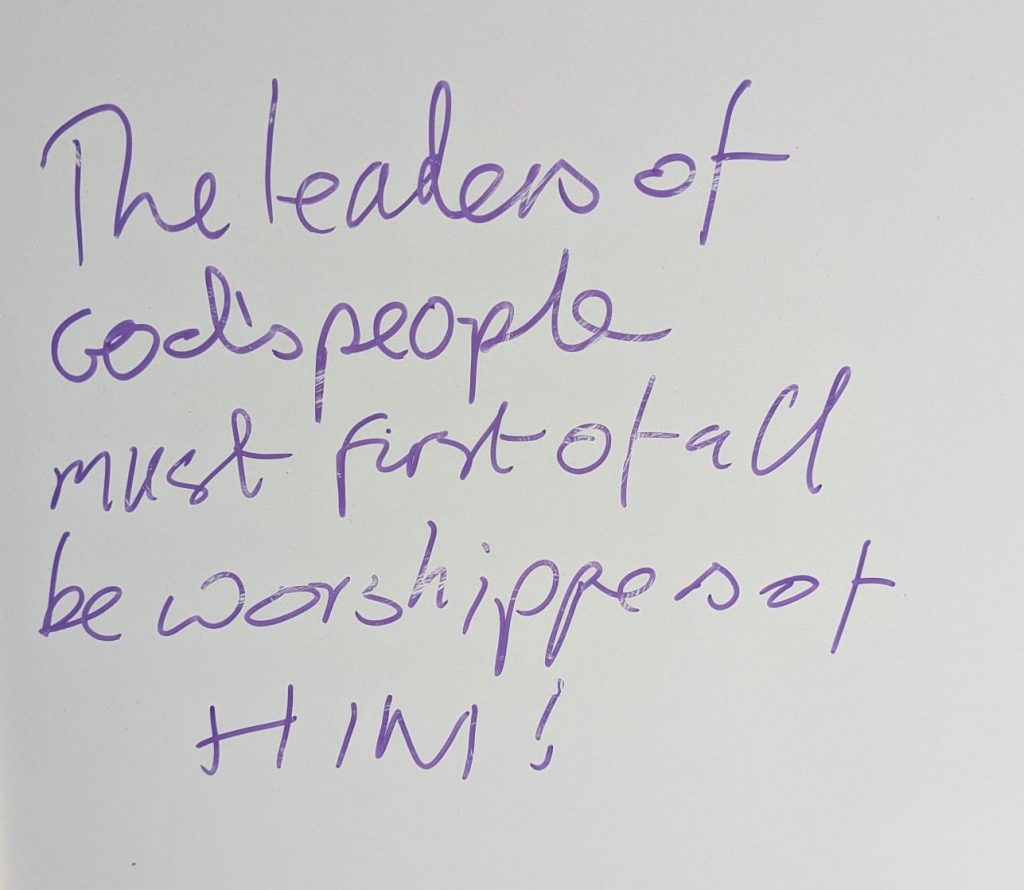 The leaders of
God's people
must first of all
be worshippers of
HIM!